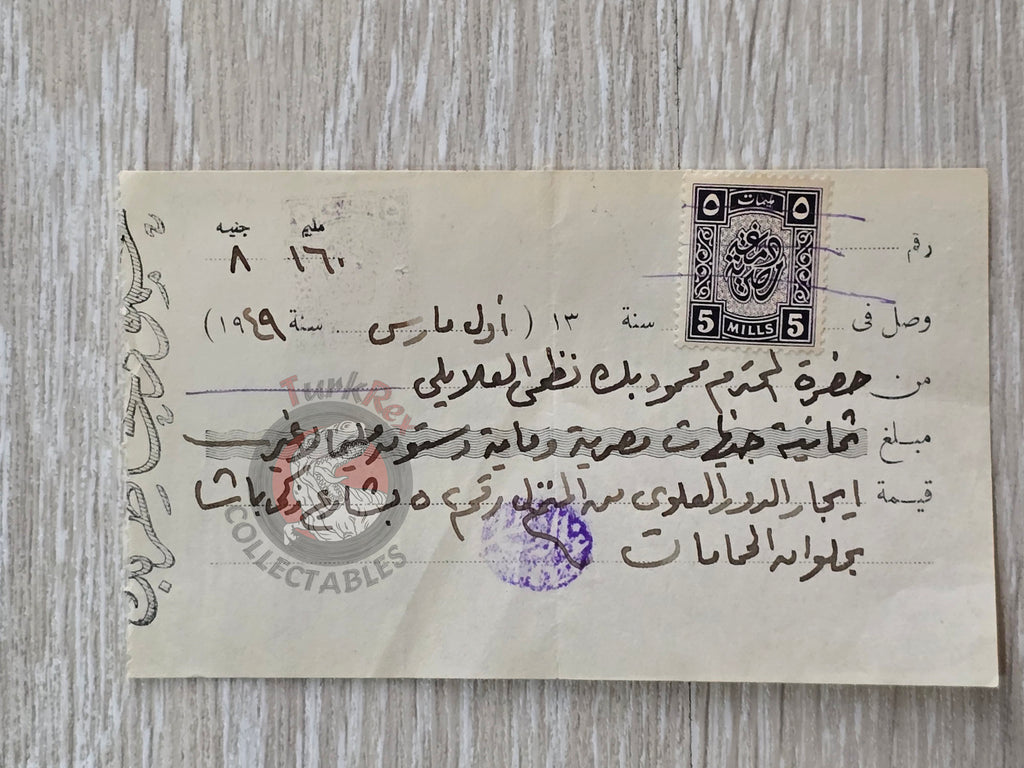 مليم جنيه
١٦٠ ٨
رقم
٥ مليمات ٥
5 MILLS 5
وصل فى سنة ١٣ ( أول مارس سنة ١٩٤٩ )
من حضرة المحترم محمود بك نظمى العلايلى
مبلغ ثمانية جنيهات مصرية وماية وستون مليما لا غير
قيمة ايجار الدور العلوى من المنزل رقم ٥ بشارع زكى باشا
بحلوان الحمامات
TurkRey
COLLECTABLES